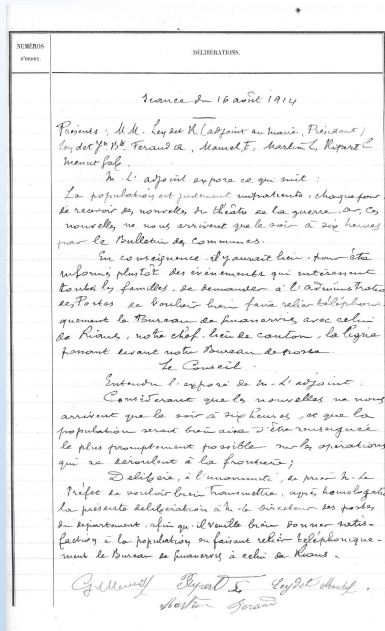 NUMÉROS
D'ORDRE.
DÉLIBÉRATIONS.
Séance du 16 août 1914
Présents : M M. Leydet H (adjoint au maire, Président)
Leydet Jn Bte Feraud A, Maurel F, Martin L, Ripert L
Menut Gal.
M. L'adjoint expose ce qui suit :
La population est justement impatiente, chaque jour,
de recevoir des nouvelles du théâtre de la guerre. Or, ces
nouvelles ne nous arrivent que le soir à six heures
par le Bulletin des Communes.
En conséquence il y aurait lieu, pour être
informés plustôt des évènements qui intéressent
toutes les familles, de demander à l'administration
des Postes de vouloir bien faire relier téléphoni
quement le Bureau de Ginasservis avec celui
de Rians, notre chef-lieu de canton, la ligne
passant devant notre Bureau de poste.
Le Conseil
Entendu l'exposé de M. L'adjoint :
Considérant que les nouvelles ne nous
arrivent que le soir à six heures, et que la
population serait bien aise d'être renseignée
le plus promptement possible sur les opérations
qui se déroulent à la frontière ;
Délibère, à l'unanimité, de prier M. le
Préfet de vouloir bien transmettre, après homologation
la présente délibération à M. le Directeur des postes
du département, afin qu'il veuille bien donner satis-
faction à la population en faisant relier téléphonique-
ment le Bureau de Ginasservis à celui de Rians.
Ripert L Leydet Maurel
Martin Feraud